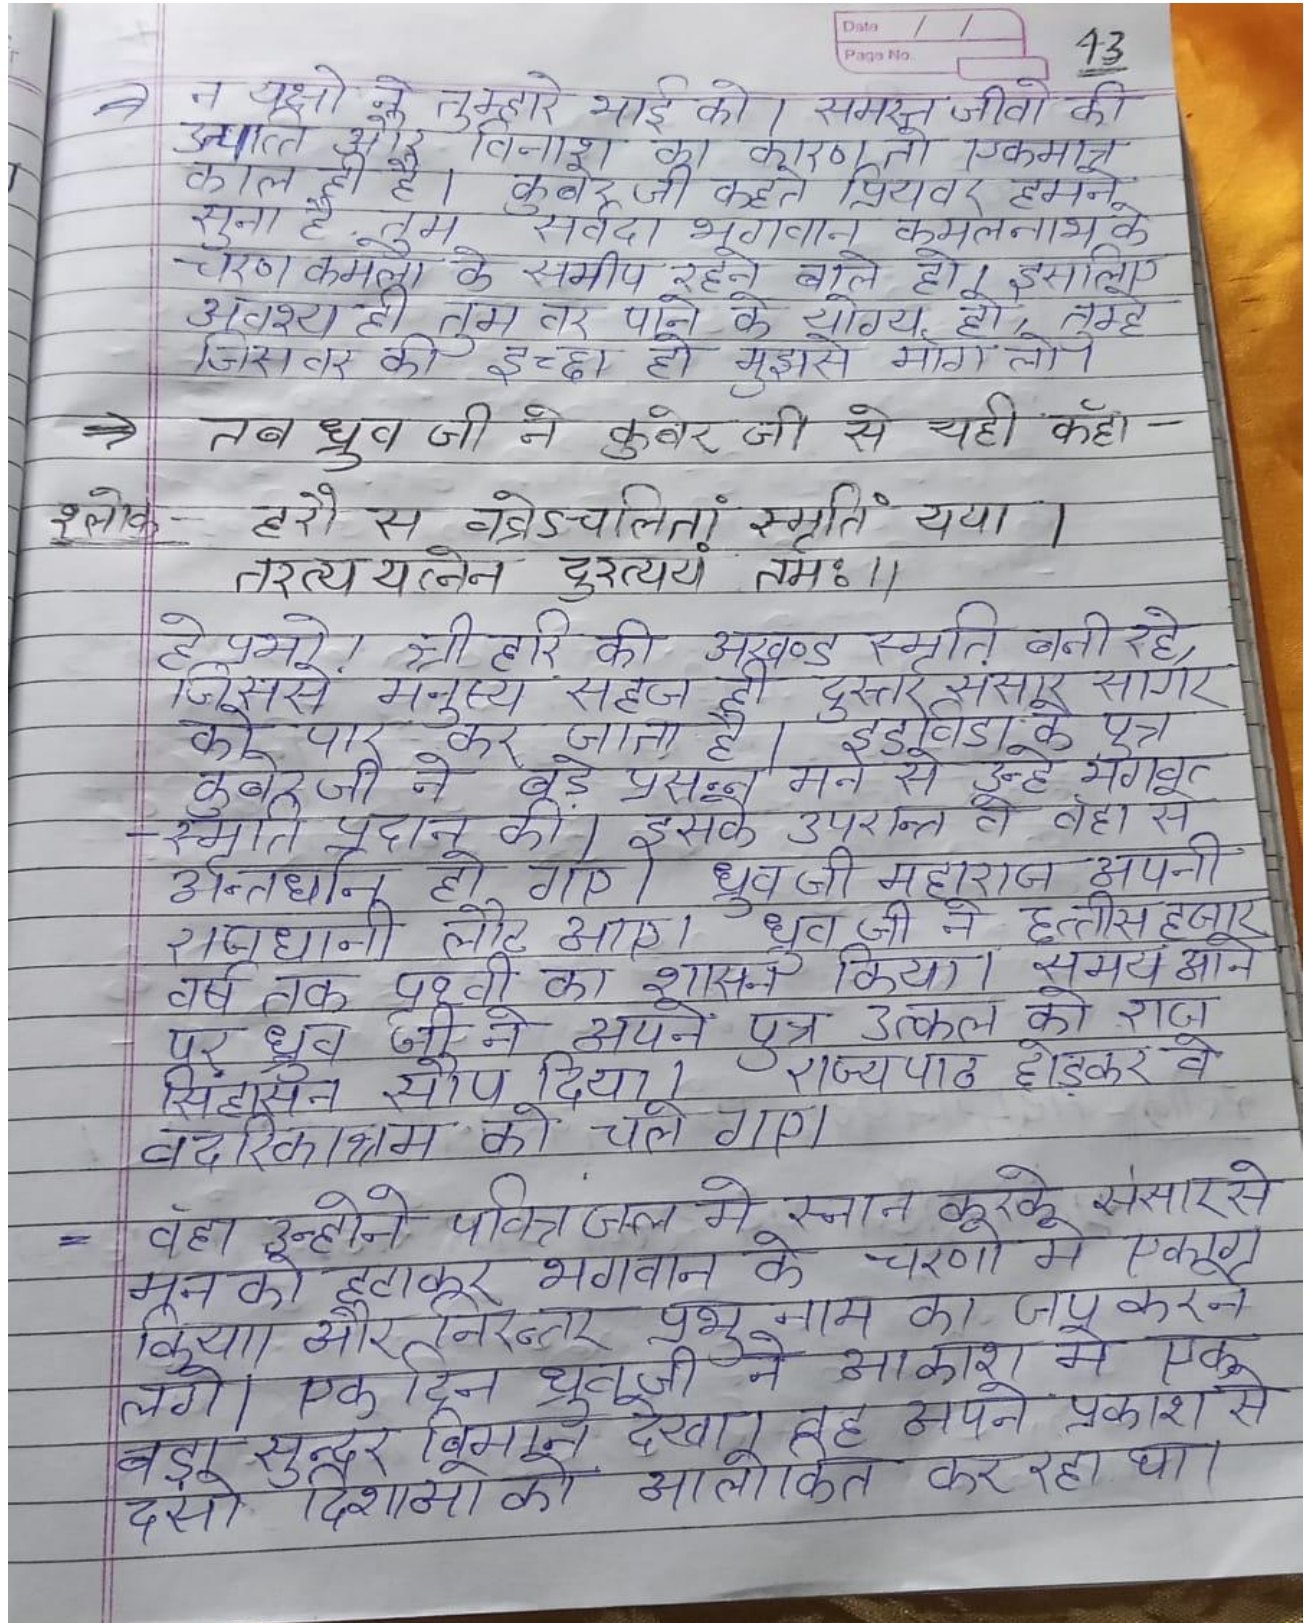 Date / /
Page No.
43
→ न यक्षो ने तुम्हारे भाई को। समस्त जीवो की
उत्पत्ति और विनाश का कारण तो एकमात्र
काल ही है। कुबेर जी कहते प्रियवर हमने
सुना है तुम सर्वदा भगवान कमलनाभ के
चरण कमलो के समीप रहने वाले हो। इसलिए
अवश्य ही तुम वर पाने के योग्य हो, तुम्हे
जिस वर की इच्छा हो मुझसे माँग लो।
→ तब ध्रुव जी ने कुबेर जी से यही कॅहा -
श्लोक - हरौ स वव्रेऽचलितां स्मृतिं यया।
तरत्य यत्नेन दुरत्ययं तमः।।
हे प्रभो! श्री हरि की अखण्ड स्मृति बनी रहे,
जिससे मनुष्य सहज ही दुस्तर संसार सागर
को पार कर जाता है। इडविडा के पुत्र
कुबेर जी ने बड़े प्रसन्न मन से उन्हे भगवत्
- स्मृति प्रदान की। इसके उपरान्त वे वॅहा से
अर्न्तधान हो गए। ध्रुव जी महाराज अपनी
राजधानी लौट आए। ध्रुव जी ने छत्तीस हजार
वर्ष तक पृथ्वी का शासन किया। समय आने
पर ध्रुव जी ने अपने पुत्र उत्कल को राज
सिंहासन सौप दिया। राज्यपाठ छोड़कर वे
वदरिकाश्रम को चले गए।
= वॅहा उन्होने पवित्र जल मे स्नान करके संसार से
मन को हटाकर भगवान के चरणो मे एकाग्र
किया। और निरन्तर प्रभु नाम का जप करने
लगे। एक दिन ध्रुव जी ने आकाश मे एक
बड़ा सुन्दर विमान देखा। वह अपने प्रकाश से
दसो दिशाओ को आलोकित कर रहा था।